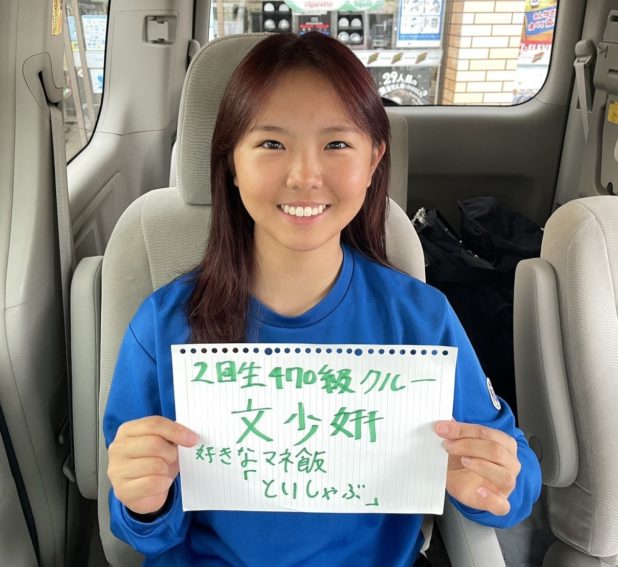 Cigarette
29人員の
2回生470級クルー
文少妍
好きなマネ飯
「とりしゃぶ」